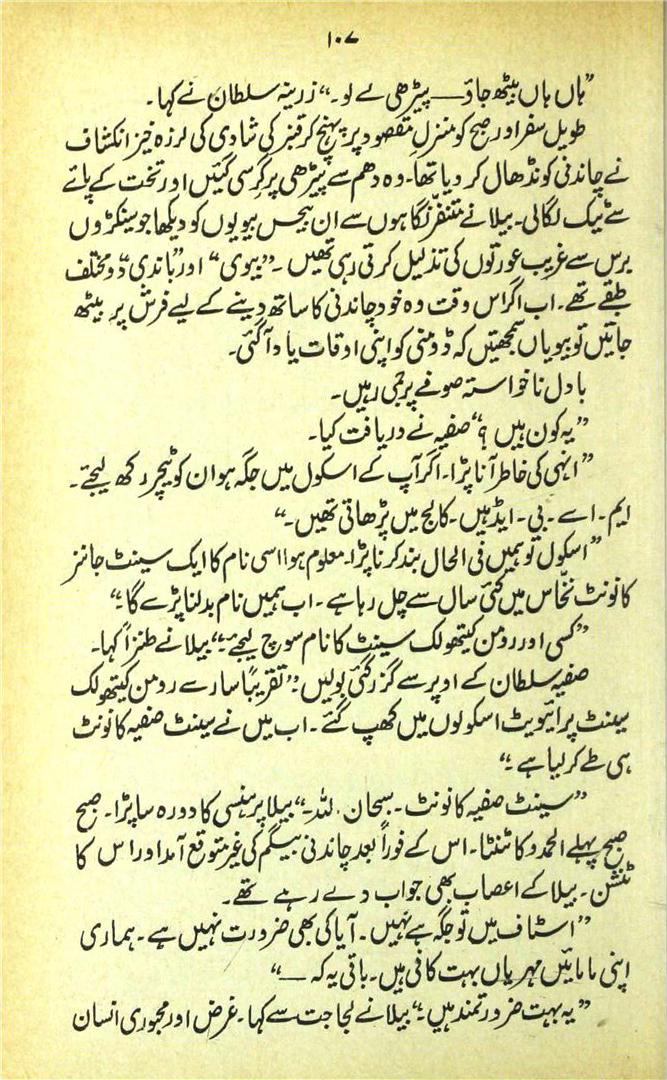 ۱۰۷
”ہاں ہاں بیٹھ جاؤ — پیڑھی لے لو۔“ زرینہ سلطان نے کہا۔
طویل سفر اور صبح کو منزلِ مقصود پر پہنچ کر قنبر کی شادی کی لرزہ خیز انکشاف
نے چاندنی کو نڈھال کر دیا تھا۔ وہ دھم سے پیڑھی پر گر سی گئیں اور تخت کے پائے
سے ٹیک لگالی۔ بیلا نے متنفّر نگاہوں سے ان بیجس بیویوں کو دیکھا جو سینکڑوں
برس سے غریب عورتوں کی تذلیل کرتی رہی تھیں۔ ”بیوی“ اور ”باندی“ دو مختلف
طبقے تھے۔ اب اگر اس وقت وہ خود چاندنی کا ساتھ دینے کے لیے فرش پر بیٹھ
جاتیں تو بیویاں سمجھتیں کہ ڈومنی کو اپنی اوقات یاد آگئی۔
بادل ناخواستہ صوفے پر جمی رہیں۔
”یہ کون ہیں؟“ صفیہ نے دریافت کیا۔
”انہی کی خاطر آنا پڑا۔ اگر آپ کے اسکول میں جگہ ہو ان کو ٹیچر رکھ لیجئے۔
ایم۔ اے۔ بی۔ ایڈ ہیں۔ کالج میں پڑھاتی تھیں۔“
”اسکول تو ہمیں فی الحال بند کرنا پڑا۔ معلوم ہوا اسی نام کا ایک سینٹ جانز
کانونٹ نخّاس میں کئی سال سے چل رہا ہے۔ اب ہمیں نام بدلنا پڑے گا۔“
”کسی اور رومن کیتھولک سینٹ کا نام سوچ لیجئے۔“ بیلا نے طنزاً کہا۔
صفیہ سلطان کے اوپر سے گزر گئی بولیں۔ ”تقریباً سارے رومن کیتھولک
سینٹ پرائیویٹ اسکولوں میں کھپ گئے۔ اب میں نے سینٹ صفیہ کانونٹ
ہی طے کر لیا ہے۔“
”سینٹ صفیہ کانونٹ۔ سبحان اللہ۔“ بیلا پر ہنسی کا دورہ سا پڑا۔ صبح
صبح پہلے الحمدو کا ٹنٹا۔ اس کے فوراً بعد چاندنی بیگم کی غیر متوقع آمد اور اس کا
ٹنشن۔ بیلا کے اعصاب بھی جواب دے رہے تھے۔
”اسٹاف میں تو جگہ ہے نہیں۔ آیا کی بھی ضرورت نہیں ہے۔ ہماری
اپنی مامائیں مہریاں بہت کافی ہیں۔ باقی یہ کہ —“
”یہ بہت ضرورتمند ہیں۔“ بیلا نے لجاجت سے کہا۔ غرض اور مجبوری انسان